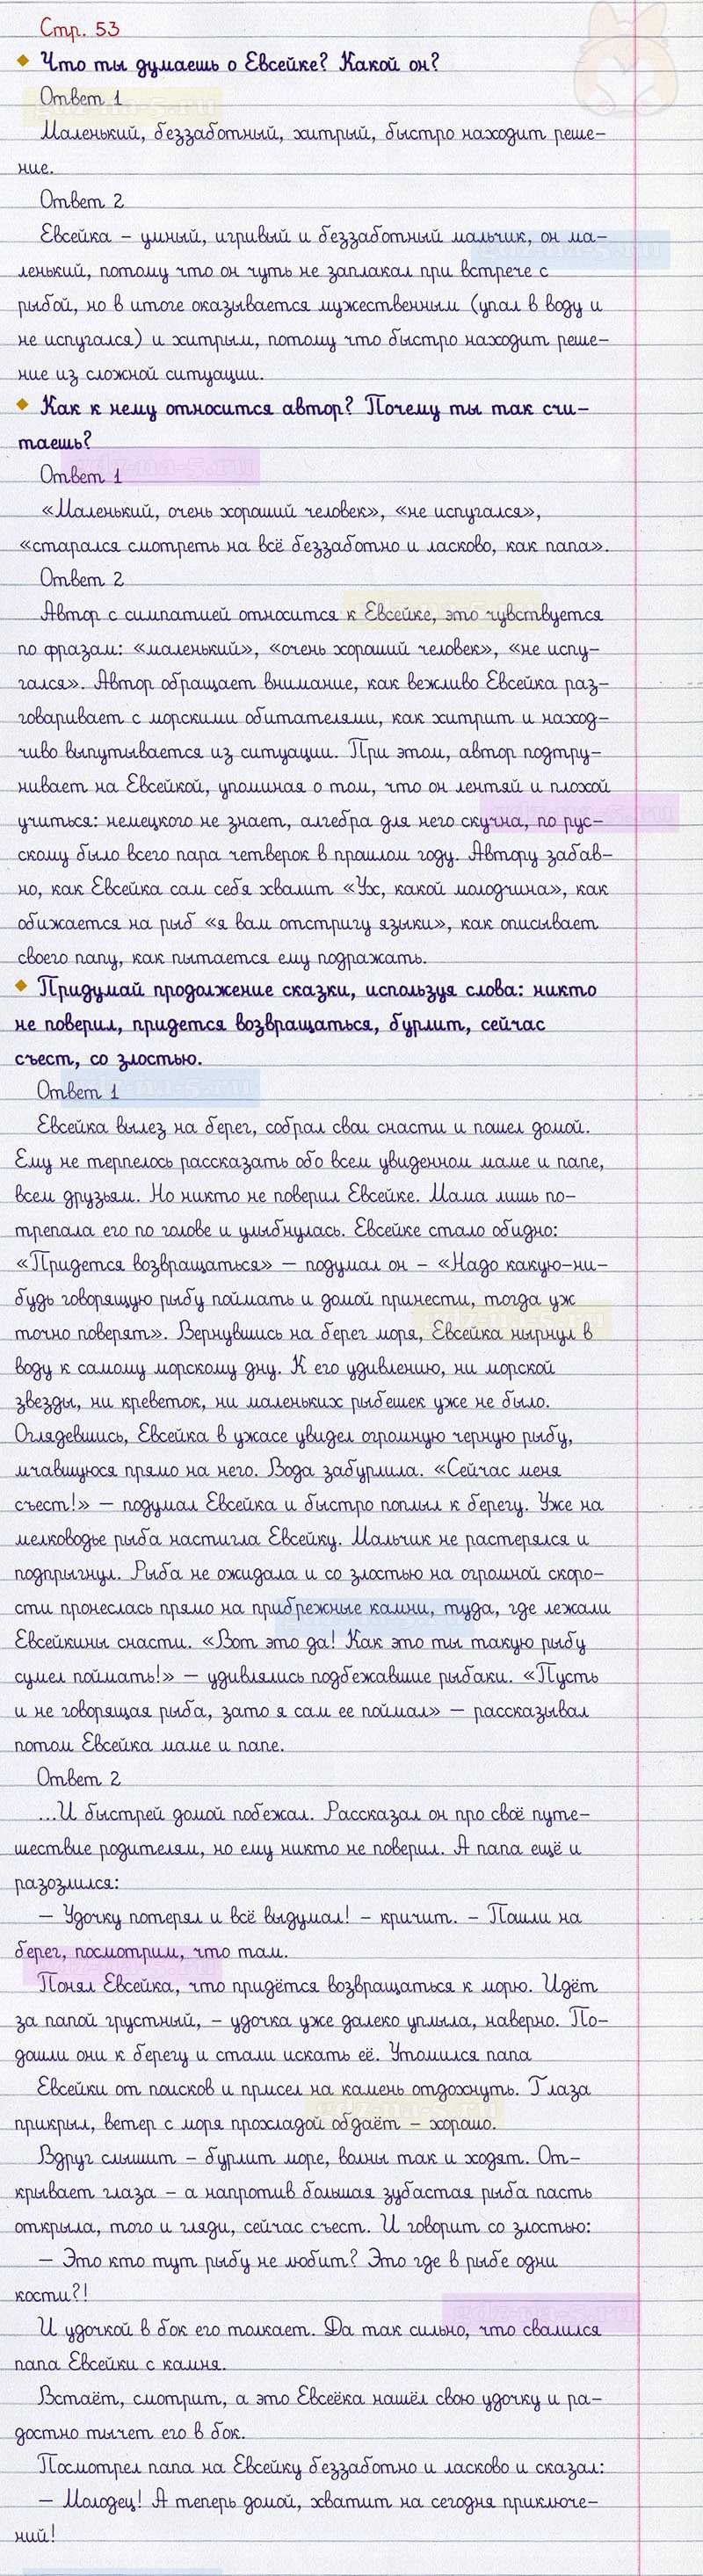 Стр. 53
Что ты думаешь о Евсейке? Какой он?
Ответ 1
Маленький, беззаботный, хитрый, быстро находит реше-
ние.
Ответ 2
Евсейка – умный, игривый и беззаботный мальчик, он ма-
ленький, потому что он чуть не заплакал при встрече с
рыбой, но в итоге оказывается мужественным (упал в воду и
не испугался) и хитрым, потому что быстро находит реше-
ние из сложной ситуации.
Как к нему относится автор? Почему ты так счи-
таешь?
Ответ 1
«Маленький, очень хороший человек», «не испугался»,
«старался смотреть на всё беззаботно и ласково, как папа».
Ответ 2
Автор с симпатией относится к Евсейке, это чувствуется
по фразам: «маленький», «очень хороший человек», «не испу-
гался». Автор обращает внимание, как вежливо Евсейка раз-
говаривает с морскими обитателями, как хитрит и наход-
чиво выпутывается из ситуации. При этом, автор подтру-
нивает на Евсейкой, упоминая о том, что он лентяй и плохой
учиться: немецкого не знает, алгебра для него скучна, по рус-
скому было всего пара четверок в прошлом году. Автору забав-
но, как Евсейка сам себя хвалит «Ух, какой молодчина», как
обижается на рыб «я вам отстригу языки», как описывает
своего папу, как пытается ему подражать.
Придумай продолжение сказки, используя слова: никто
не поверил, придется возвращаться, бурлит, сейчас
съест, со злостью.
Ответ 1
Евсейка вылез на берег, собрал сваи снасти и пошел домой.
Ему не терпелось рассказать обо всем увиденном маме и папе,
всем друзьям. Но никто не поверил Евсейке. Мама лишь по-
трепала его по голове и улыбнулась. Евсейке стало обидно:
«Придется возвращаться» – подумал он – «Надо какую-ни-
будь говорящую рыбу поймать и домой принести, тогда уж
точно поверят». Вернувшись на берег моря, Евсейка нырнул в
воду к самому морскому дну. К его удивлению, ни морской
звезды, ни креветок, ни маленьких рыбешек уже не было.
Оглядевшись, Евсейка в ужасе увидел огромную черную рыбу,
мчавшуюся прямо на него. Вода забурлила. «Сейчас меня
съест!» – подумал Евсейка и быстро поплыл к берегу. Уже на
мелководье рыба настигла Евсейку. Мальчик не растерялся и
подпрыгнул. Рыба не ожидала и со злостью на огромной скоро-
сти пронеслась прямо на прибрежные камни, туда, где лежали
Евсейкины снасти. «Вот это да! Как это ты такую рыбу
сумел поймать!» – удивлялись подбежавшие рыбаки. «Пусть
и не говорящая рыба, зато я сам ее поймал» – рассказывал
потом Евсейка маме и папе.
Ответ 2
...И быстрей домой побежал. Рассказал он про своё путе-
шествие родителям, но ему никто не поверил. А папа ещё и
разозлился:
– Удочку потерял и всё выдумал! – кричит. – Пошли на
берег, посмотрим, что там.
Понял Евсейка, что придётся возвращаться к морю. Идёт
за папой грустный, – удочка уже далеко уплыла, наверно. По-
дошли они к берегу и стали искать её. Утомился папа
Евсейки от поисков и присел на камень отдохнуть. Глаза
прикрыл, ветер с моря прохладой обдаёт – хорошо.
Вдруг слышит – бурлит море, волны так и ходят. От-
крывает глаза – а напротив большая зубастая рыба пасть
открыла, того и гляди, сейчас съест. И говорит со злостью:
– Это кто тут рыбу не любит? Это где в рыбе одни
кости?!
И удочкой в бок его толкает. Да так сильно, что свалился
папа Евсейки с камня.
Встаёт, смотрит, а это Евсеёка нашёл свою удочку и ра-
достно тычет его в бок.
Посмотрел папа на Евсейку беззаботно и ласково и сказал:
– Молодец! А теперь домой, хватит на сегодня приключе-
ний!